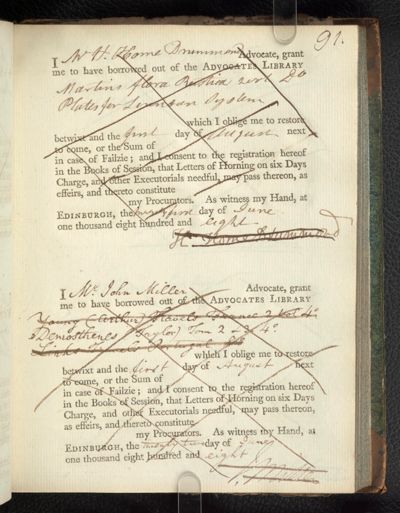 91.
I Mr H. Home Drummond Advocate, grant
me to have borrowed out of the ADVOCATES LIBRARY
Martins flora Rustica
Plates for Linnean System
which I oblige me to restore
betwixt and the first day of August next
to come, or the Sum of
in case of Failzie; and I consent to the registration hereof
in the Books of Session, that Letters of Horning on six Days
Charge, and other Executorials needful, may pass thereon, as
effeirs, and thereto constitute
my Procurators. As witness my Hand, at
EDINBURGH, the day of June
one thousand eight hundred and eight
H. Home Drummond
I Mr. John Miller Advocate, grant
me to have borrowed out of the ADVOCATES LIBRARY
Young (Arthur) Travels France 2 vol 4o
Demosthenes (Taylor) Tom 2 & 3 4o
Links Travels Portugal
which I oblige me to restore
betwixt and the first day of August next
to come, or the Sum of
in case of Failzie; and I consent to the registration hereof
in the Books of Session, that Letters of Horning on six Days
Charge, and other Executorials needful, may pass thereon,
as effeirs, and thereto constitute
my Procurators. As witness my Hand, at
EDINBURGH, the day of June
one thousand eight hundred and eight
J. Miller